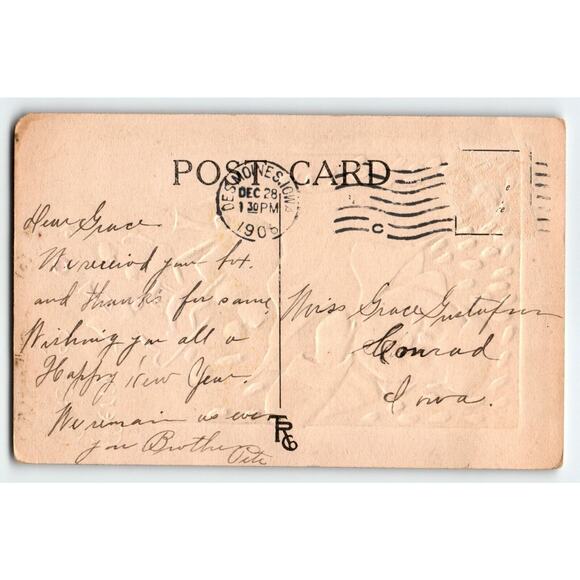 POST CARD
DES MOINES, IOWA
DEC 28
1 30 PM
1906
C
Dear Grace
We receivd your bx.
and thanks for same
Wishing you all a
Happy New Year.
We remain as ever
you Brother
Pete
Miss Grace Gustafson
Conrad
Iowa.
TRG